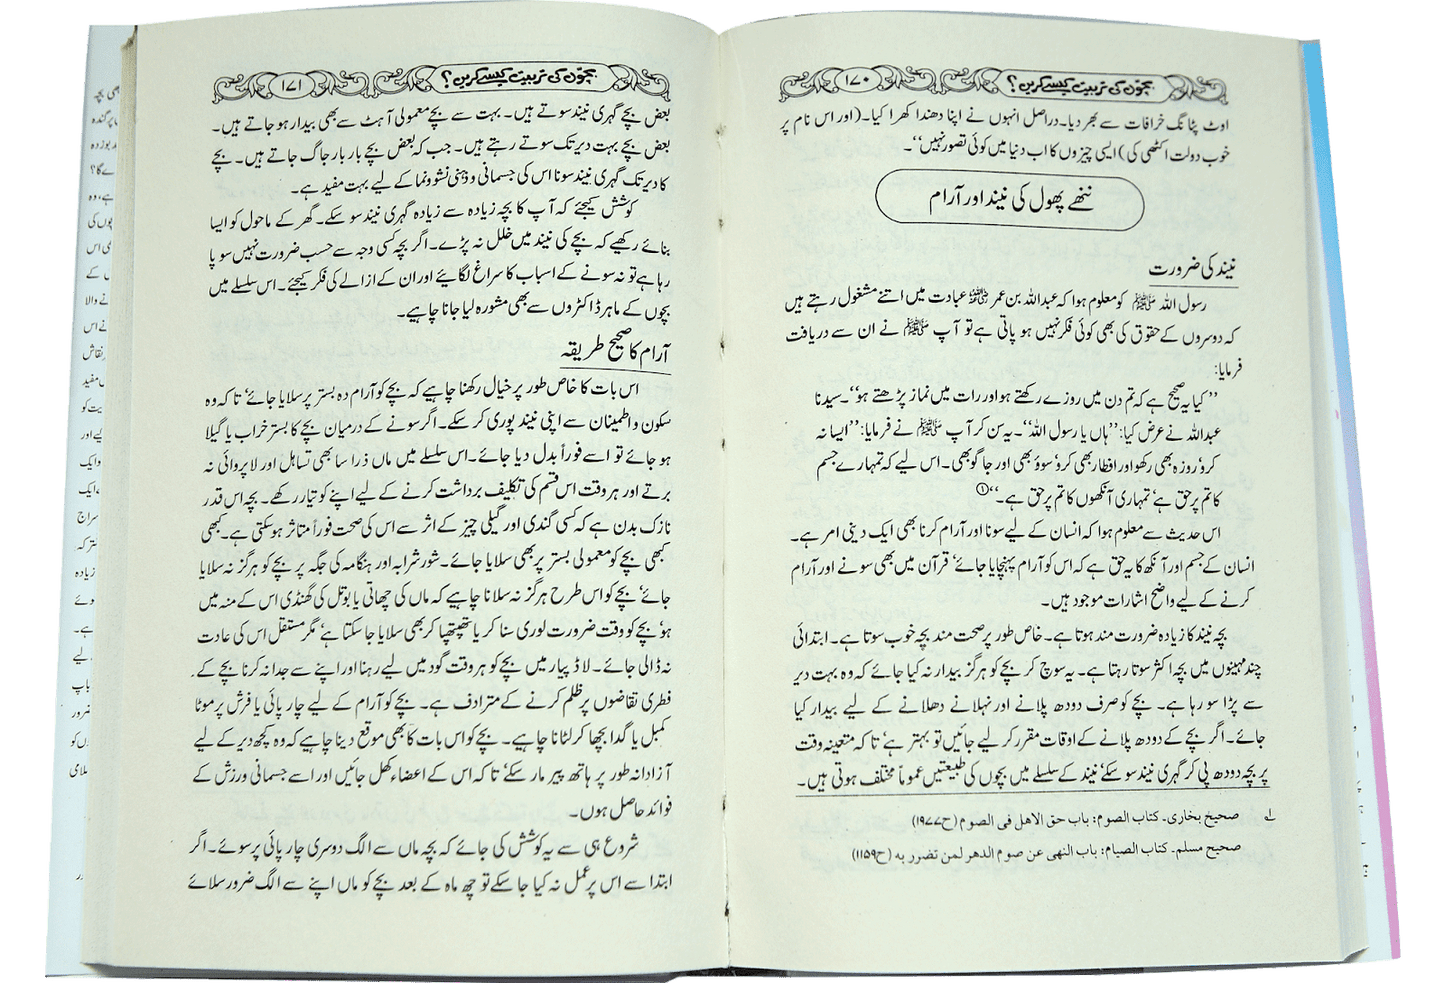 بچّوں کی تربیت کیسے کریں؟
۱۷۰
اوٹ پٹانگ خرافات سے بھر دیا۔ دراصل انہوں نے اپنا دھندا کھرا کیا۔ (اور اس نام پر
خوب دولت اکٹھی کی) ایسی چیزوں کا اب دنیا میں کوئی تصور نہیں‘‘۔
ننھے پھول کی نیند اور آرام
نیند کی ضرورت
رسول اللہ ﷺ کو معلوم ہوا کہ عبداللہ بن عمر ﷺ عبادت میں اتنے مشغول رہتے ہیں
کہ دوسروں کے حقوق کی بھی کوئی فکر نہیں ہو پاتی ہے تو آپ ﷺ نے ان سے دریافت
فرمایا:
’’کیا یہ صحیح ہے کہ تم دن میں روزے رکھتے ہو اور رات میں نماز پڑھتے ہو‘‘۔ سیدنا
عبداللہ نے عرض کیا: ’’ہاں یا رسول اللہ‘‘۔ یہ سن کر آپ ﷺ نے فرمایا: ’’ایسا نہ
کرو‘ روزہ بھی رکھو اور افطار بھی کرو‘ سوؤ بھی اور جاگو بھی۔ اس لیے کہ تمہارے جسم
کا تم پر حق ہے‘ تمہاری آنکھوں کا تم پر حق ہے۔‘‘ ①
اس حدیث سے معلوم ہوا کہ انسان کے لیے سونا اور آرام کرنا بھی ایک دینی امر ہے۔
انسان کے جسم اور آنکھ کا یہ حق ہے کہ اس کو آرام پہنچایا جائے‘ قرآن میں بھی سونے اور آرام
کرنے کے لیے واضح اشارات موجود ہیں۔
بچہ نیند کا زیادہ ضرورت مند ہوتا ہے۔ خاص طور پر صحت مند بچہ خوب سوتا ہے۔ ابتدائی
چند مہینوں میں بچہ اکثر سوتا رہتا ہے۔ یہ سوچ کر بچے کو ہرگز بیدار نہ کیا جائے کہ وہ بہت دیر
سے پڑا سو رہا ہے۔ بچے کو صرف دودھ پلانے اور نہلانے دھلانے کے لیے بیدار کیا
جائے۔ اگر بچے کے دودھ پلانے کے اوقات مقرر کر لیے جائیں تو بہتر ہے‘ تاکہ متعینہ وقت
پر بچہ دودھ پی کر گہری نیند سو سکے‘ نیند کے سلسلے میں بچوں کی طبیعتیں عموماً مختلف ہوتی ہیں۔
؎۱ صحیح بخاری۔ کتاب الصوم: باب حق الاھل فی الصوم (ح۱۹۷۷)
صحیح مسلم۔ کتاب الصیام: باب النھی عن صوم الدھر لمن تضرر بہ (ح۱۱۵۹)
بچّوں کی تربیت کیسے کریں؟
۱۷۱
بعض بچے گہری نیند سوتے ہیں۔ بہت سے بچے معمولی آہٹ سے بھی بیدار ہو جاتے ہیں۔
بعض بچے بہت دیر تک سوتے رہتے ہیں۔ جب کہ بعض بچے بار بار جاگ جاتے ہیں۔ بچے
کا دیر تک گہری نیند سونا اس کی جسمانی و ذہنی نشوونما کے لیے بہت مفید ہے۔
کوشش کیجئے کہ آپ کا بچہ زیادہ سے زیادہ گہری نیند سو سکے۔ گھر کے ماحول کو ایسا
بنائے رکھیے کہ بچے کی نیند میں خلل نہ پڑے۔ اگر بچہ کسی وجہ سے حسب ضرورت نہیں سو پا
رہا ہے تو نہ سونے کے اسباب کا سراغ لگائیے اور ان کے ازالے کی فکر کیجئے۔ اس سلسلے میں
بچوں کے ماہر ڈاکٹروں سے بھی مشورہ لیا جانا چاہیے۔
آرام کا صحیح طریقہ
اس بات کا خاص طور پر خیال رکھنا چاہیے کہ بچے کو آرام دہ بستر پر سلایا جائے‘ تا کہ وہ
سکون و اطمینان سے اپنی نیند پوری کر سکے۔ اگر سونے کے درمیان بچے کا بستر خراب یا گیلا
ہو جائے تو اسے فوراً بدل دیا جائے۔ اس سلسلے میں ماں ذرا سا بھی تساہل اور لاپروائی نہ
برتے اور ہر وقت اس قسم کی تکلیف برداشت کرنے کے لیے اپنے کو تیار رکھے۔ بچہ اس قدر
نازک بدن ہے کہ کسی گندی اور گیلی چیز کے اثر سے اس کی صحت فوراً متاثر ہو سکتی ہے۔ کبھی
کبھی بچے کو معمولی بستر پر بھی سلایا جائے۔ شور شرابہ اور ہنگامہ کی جگہ پر بچے کو ہرگز نہ سلایا
جائے‘ بچے کو اس طرح ہرگز نہ سلانا چاہیے کہ ماں کی چھاتی یا بوتل کی گھنڈی اس کے منہ میں
ہو‘ بچے کو وقت ضرورت لوری سنا کر یا تھپتھپا کر بھی سلایا جا سکتا ہے‘ مگر مستقل اس کی عادت
نہ ڈالی جائے۔ لاڈ پیار میں بچے کو ہر وقت گود میں لیے رہنا اور اپنے سے جدا نہ کرنا بچے کے
فطری تقاضوں پر ظلم کرنے کے مترادف ہے۔ بچے کو آرام کے لیے چارپائی یا فرش پر موٹا
کمبل یا گدا بچھا کر لٹانا چاہیے۔ بچے کو اس بات کا بھی موقع دینا چاہیے کہ وہ کچھ دیر کے لیے
آزادانہ طور پر ہاتھ پیر مار سکے‘ تا کہ اس کے اعضاء کھل جائیں اور اسے جسمانی ورزش کے
فوائد حاصل ہوں۔
شروع ہی سے یہ کوشش کی جائے کہ بچہ ماں سے الگ دوسری چارپائی پر سوئے۔ اگر
ابتدا سے اس پر عمل نہ کیا جا سکے تو چھ ماہ کے بعد بچے کو ماں اپنے سے الگ ضرور سلائے